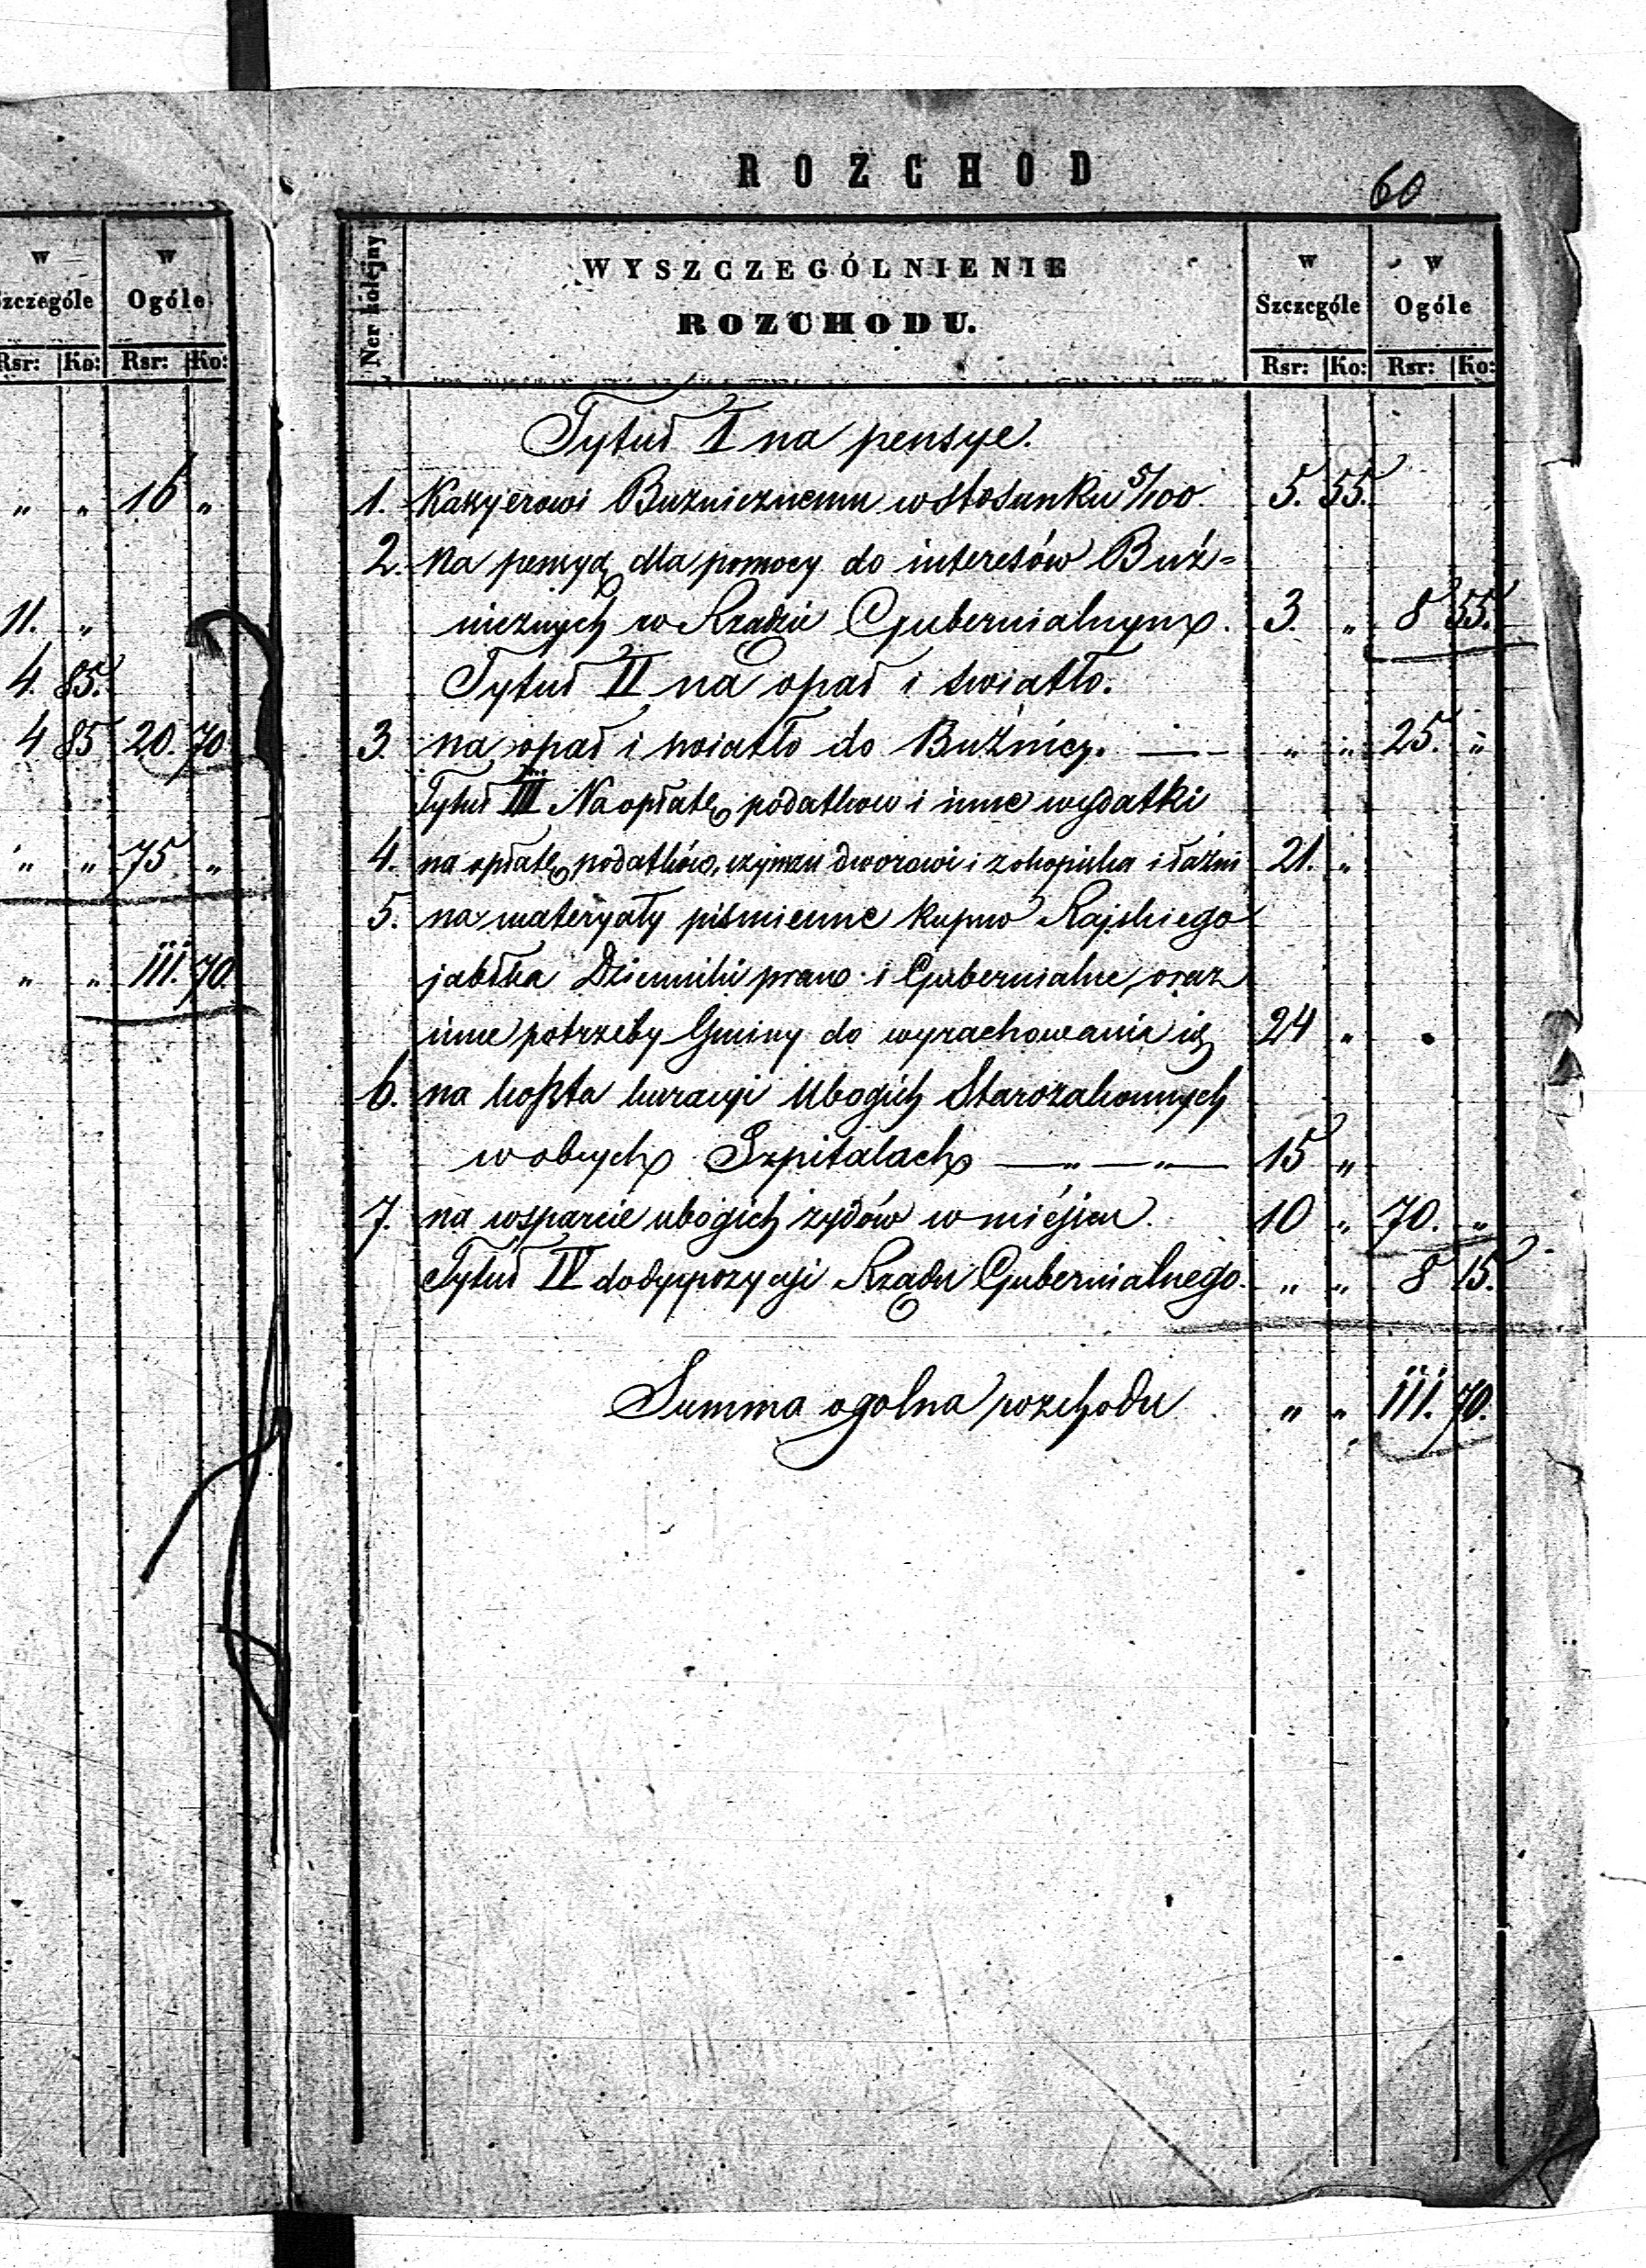 w w
Szczególe Ogóle
Rsr: Ko: Rsr: Ko:
" " 16 "
11. "
4. 85.
4 85 20. 70
" " 75 "
" " 111. 70.
ROZCHÓD
60
Ner kolejny WYSZCZEGÓLNIENIE ROZCHODU. w Szczególe w Ogóle
Rsr: Ko: Rsr: Ko:
Tytuł I na pensye.
1. Kassyerowi Buznicznemu w stosunku 5/100. 5. 55.
2. Na pensyą dla pomocy do interesów Buź=
nicznych w Rządzie Gubernialnym. 3. " 8 55.
Tytuł II na opał i swiatło.
3 na opał i swiatło do Buźnicy. — " " 25. "
Tytuł III Na opłatę podatkow i inne wydatki
4. na opłatę podatków, czynszu dworowi i z okopiska i łaźni 21. "
5. na materyały piśmienne kupno Rajskiego
jabłka Dzienniki praw i Gubernialne, oraz
inne potrzeby Gminy do wyrachowania się 24 "
6. na koszta kuracyi Ubogich Starozakonnych
w obcych Szpitalach — " — " — 15 "
7. na wsparcie ubogich zydów w miéjscu. 10 " 70. "
Tytuł IV do dyspozycyi Rządu Gubernialnego. " " 8 15.
Summa ogolna rozchodu " " 111. 70.